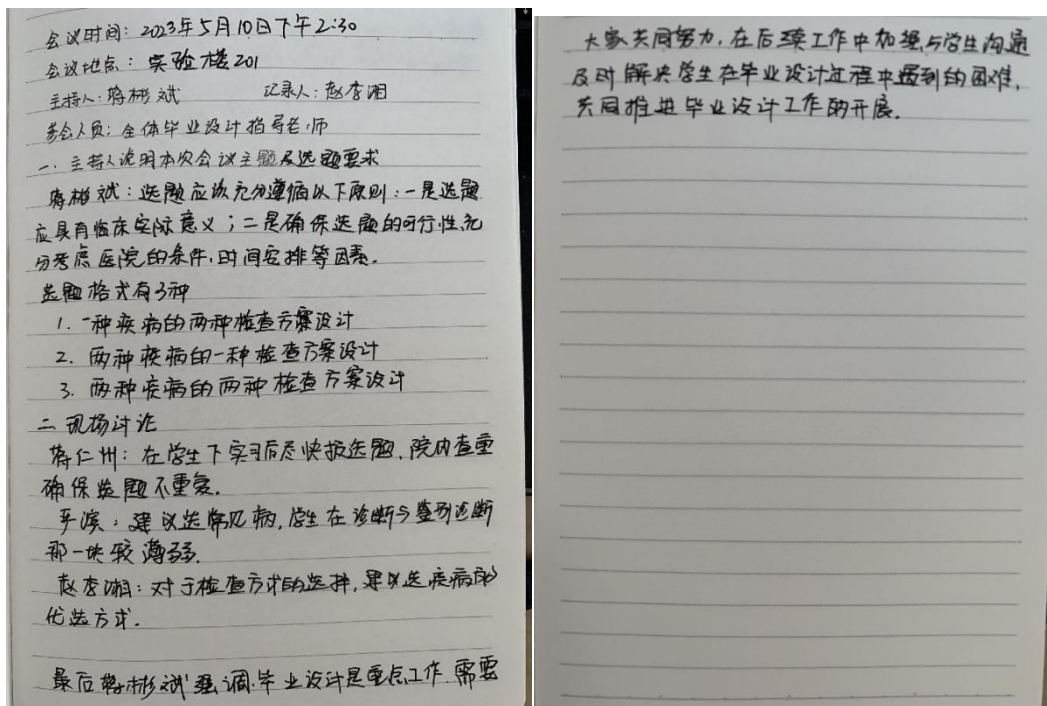 会议时间：2023年5月10日下午2:30
会议地点：实验楼201
主持人：蒋彬斌 记录人：赵李湘
参会人员：全体毕业设计指导老师
一、主持人说明本次会议主题及选题要求
蒋彬斌：选题应该充分遵循以下原则：一是选题
应具有临床实际意义；二是确保选题的可行性，充
分考虑医院的条件，时间安排等因素。
选题格式有3种
1. 一种疾病的两种检查方案设计
2. 两种疾病的一种检查方案设计
3. 两种疾病的两种检查方案设计
二、现场讨论
蒋仁州：在学生下实习后尽快报选题，院内查重
确保选题不重复。
滨：建议选常见病，学生在诊断与鉴别诊断
那一块较薄弱。
赵李湘：对于检查方式的选择，建议选疾病的
优选方式。
最后蒋彬斌强调，毕业设计是重点工作，需要
大家共同努力，在后续工作中加强与学生沟通
及时解决学生在毕业设计过程中遇到的困难，
共同推进毕业设计工作的开展。